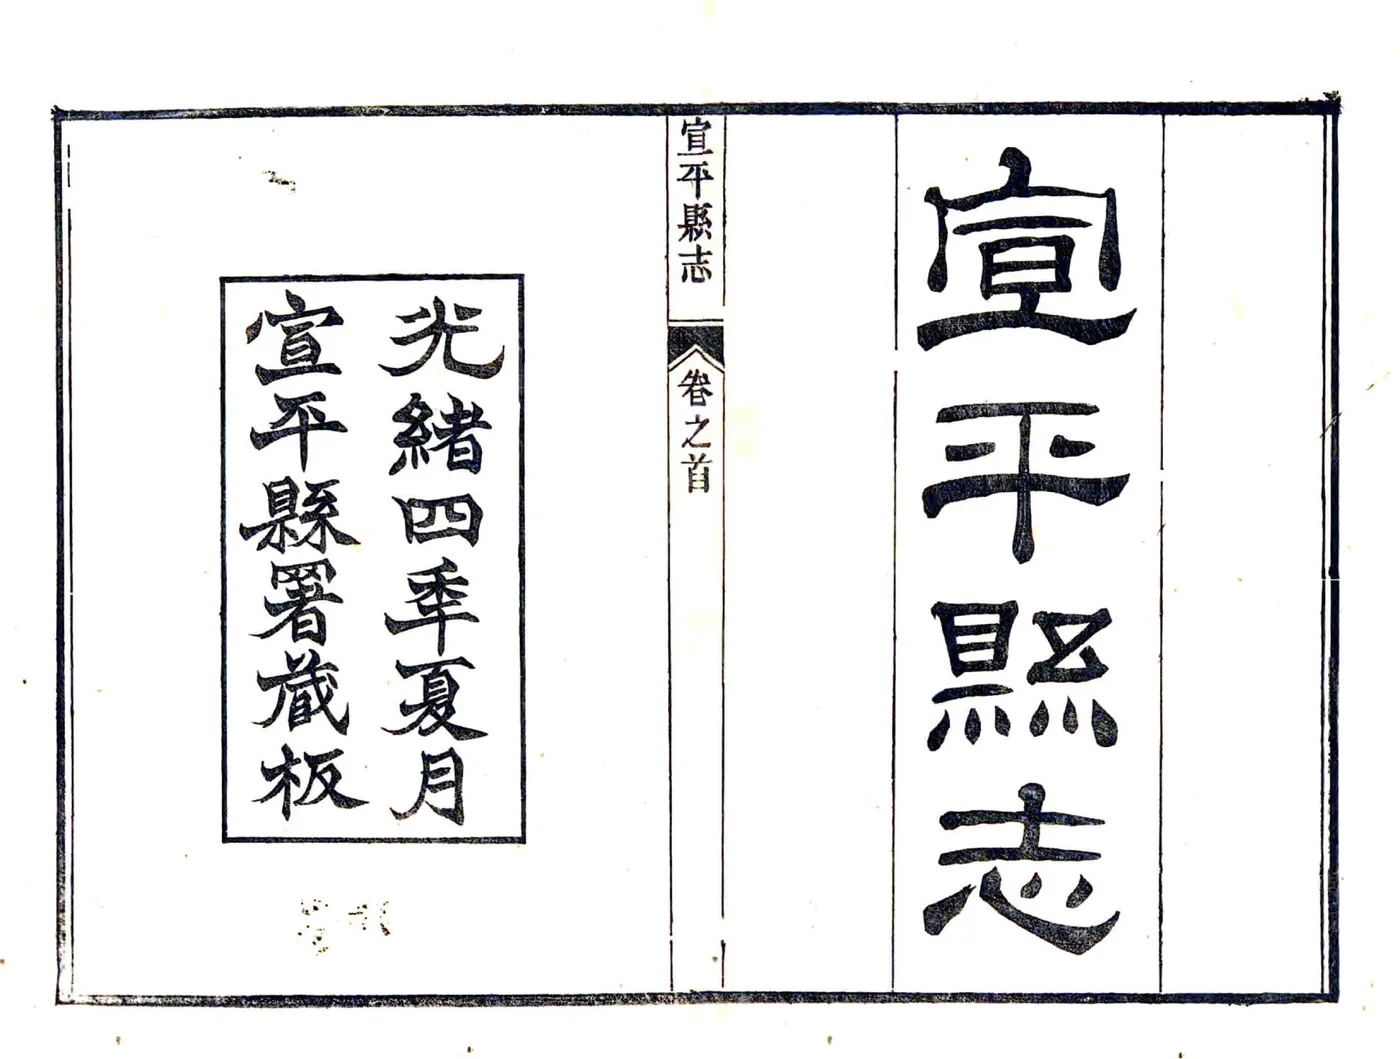 宣平縣志
宣平縣志
卷之首
光緒四年夏月
宣平縣署藏板